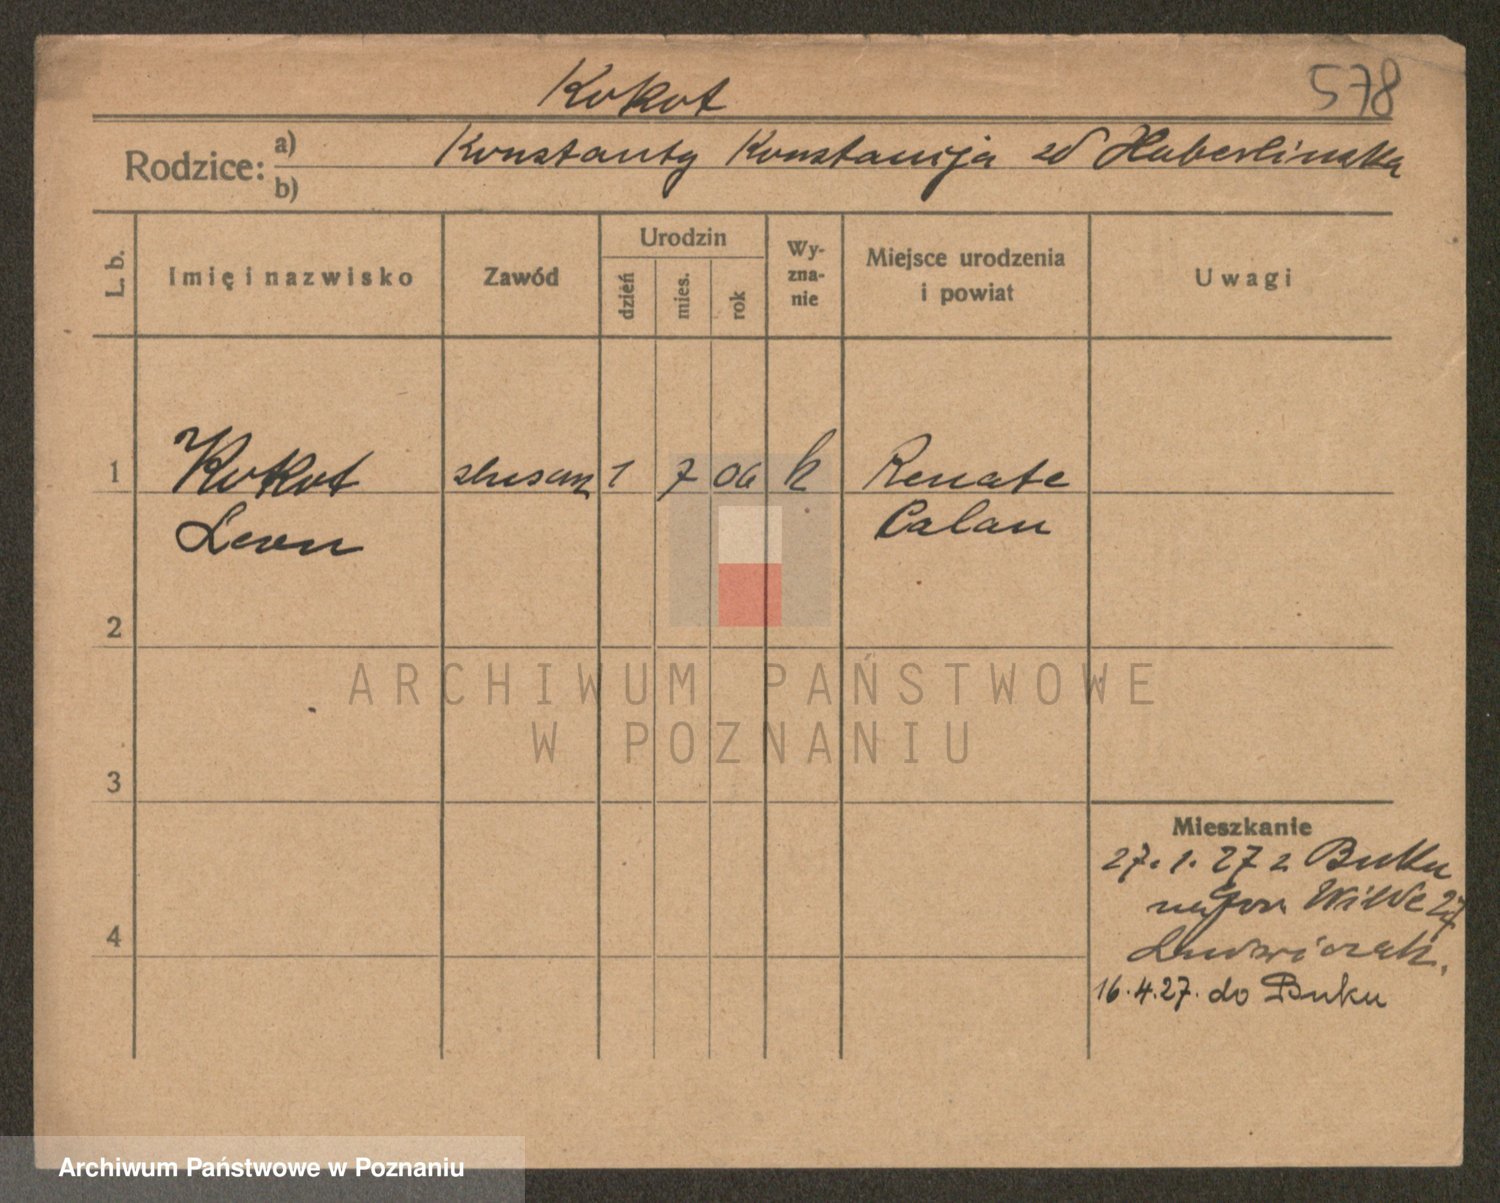 Kokot
578
Rodzice: a) Konstanty Konstancja zd Haberlinska
b)
L. b.
Imię i nazwisko
Zawód
Urodzin
dzień
mies.
rok
Wy-
zna-
nie
Miejsce urodzenia
i powiat
Uwagi
1 Kokot 1 7 06 k Renate
Leon Calau
2
3
4
Mieszkanie
27.1.27 z Buku
Wilde 27
Ludwiczak.
16.4.27. do Buku
ARCHIWUM PAŃSTWOWE
W POZNANIU
Archiwum Państwowe w Poznaniu